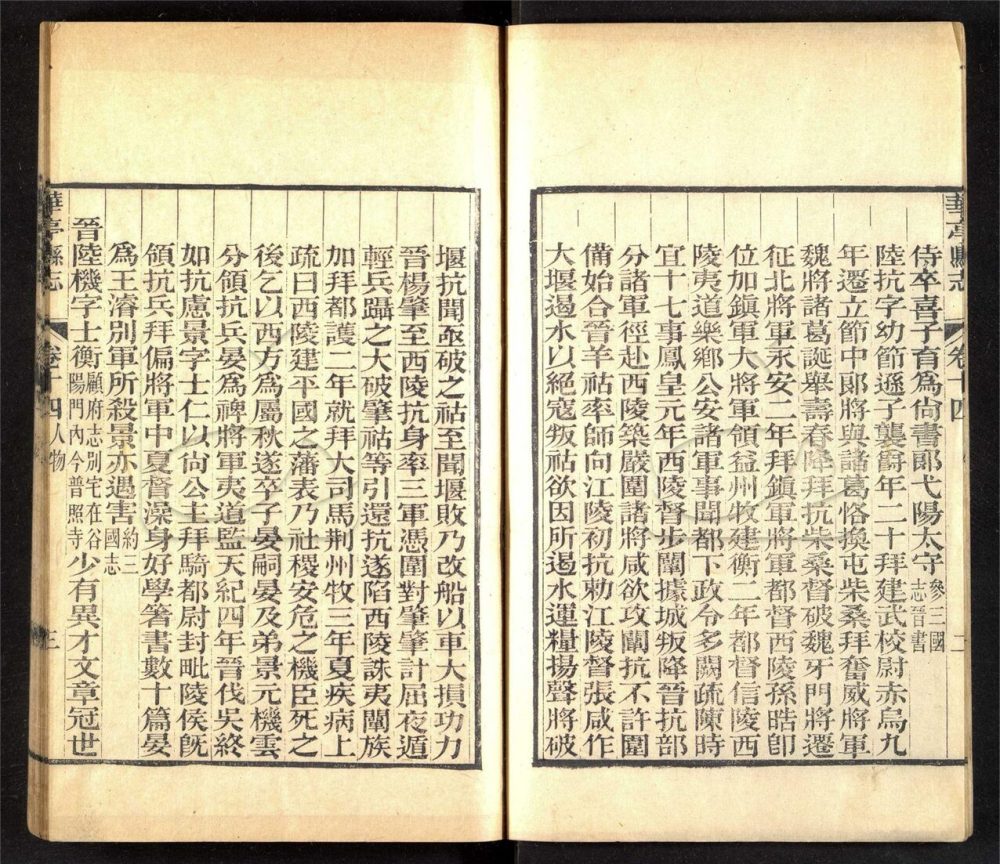 華亭縣志 卷十四 二
侍卒喜子育爲尙書郞弋陽太守參三國志晉書
陸抗字幼節遜子襲爵年二十拜建武校尉赤烏九
年遷立節中郞將與諸葛恪換屯柴桑拜奮威將軍
魏將諸葛誕舉壽春降拜抗柴桑督破魏牙門將遷
征北將軍永安二年拜鎭軍將軍都督西陵孫皓卽
位加鎭軍大將軍領益州牧建衡二年都督信陵西
陵夷道樂鄉公安諸軍事聞都下政令多闕疏陳時
宜十七事鳳皇元年西陵督步闡據城叛降晉抗部
分諸軍徑赴西陵築嚴圍諸將咸欲攻闡抗不許圍
備始合晉羊祜率師向江陵初抗勅江陵督張咸作
大堰遏水以絕寇叛祜欲因所遏水運糧揚聲將破
堰抗聞亟破之祜至聞堰敗乃改船以車大損功力
晉楊肇至西陵抗身率三軍憑圍對肇肇計屈夜遁
輕兵躡之大破肇祜等引還抗遂陷西陵誅夷闡族
加拜都護二年就拜大司馬荆州牧三年夏疾病上
疏曰西陵建平國之藩表乃社稷安危之機臣死之
後乞以西方爲屬秋遂卒子晏嗣晏及弟景元機雲
分領抗兵晏爲裨將軍夷道監天紀四年晉伐吳終
如抗慮景字士仁以尙公主拜騎都尉封毗陵侯旣
領抗兵拜偏將軍中夏督澡身好學箸書數十篇晏
爲王濬別軍所殺景亦遇害約三國志
晉陸機字士衡顧府志別宅在谷陽門內今普照寺少有異才文章冠世
華亭縣志 卷十四 人物 三